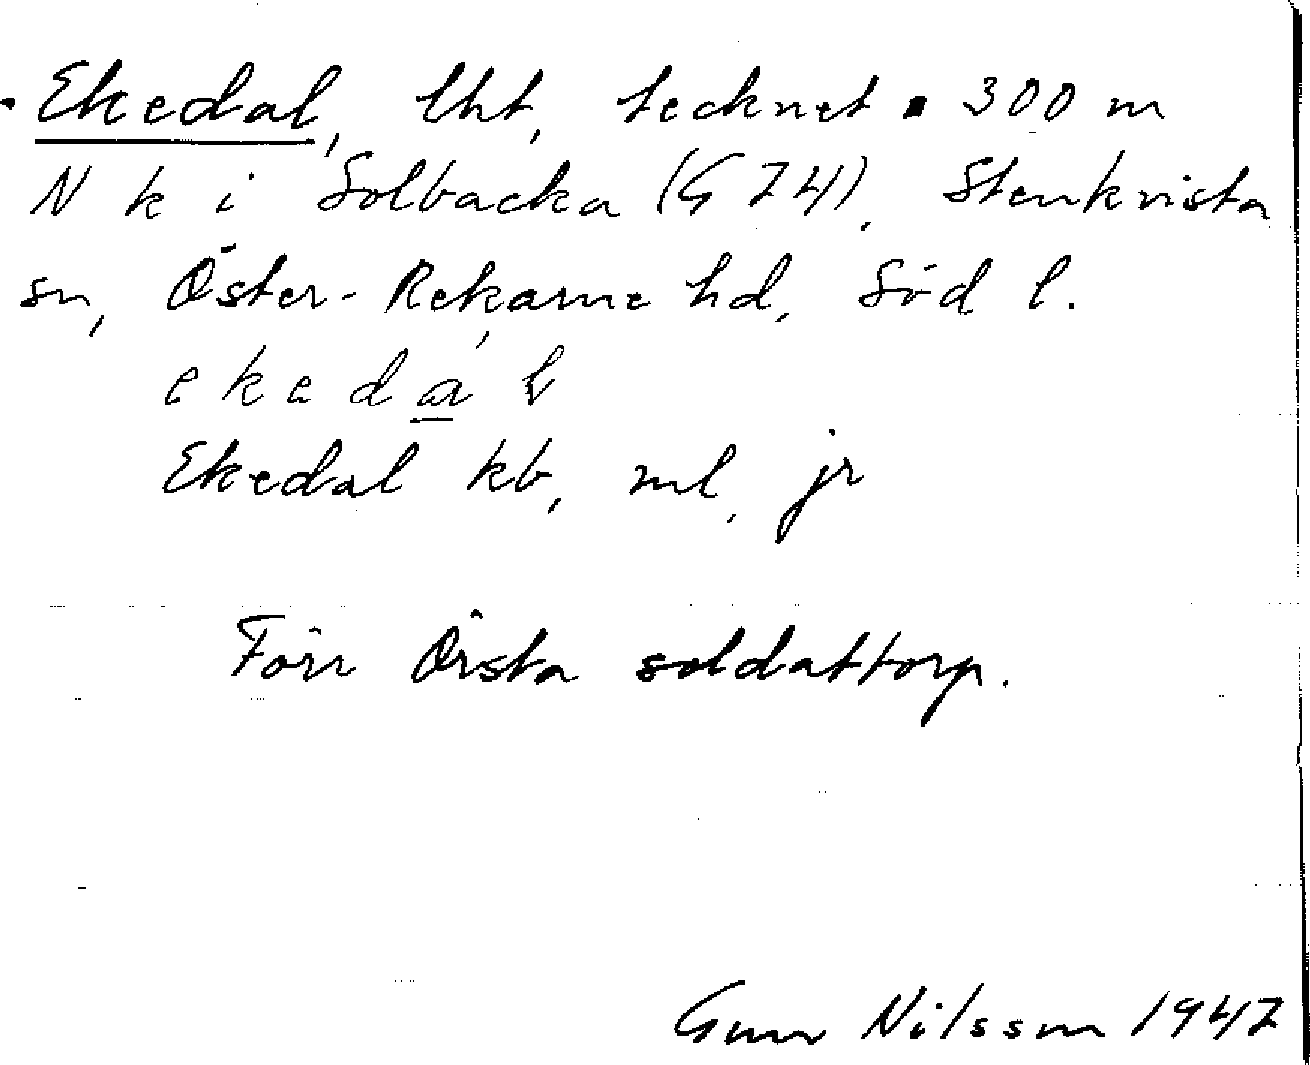 Ekedal, lht, tecknet ▪ 300 m
N k i Solbacka (G 74), Stenkvista
sn, Öster-Rekarne hd, Söd l.
ekedàl
Ekedal kb, ml, jr
Förr Örsta soldattorp.
Gun Nilsson 1947